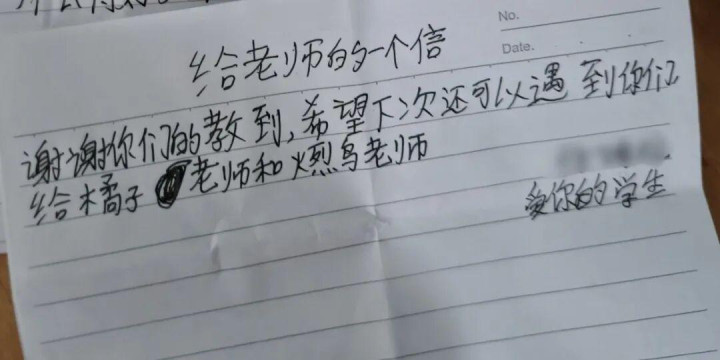 No.
Date.
给老师的一个信
谢谢你们的教到,希望下次还可以遇到你们
给橘子老师和火烈鸟老师
爱你的学生